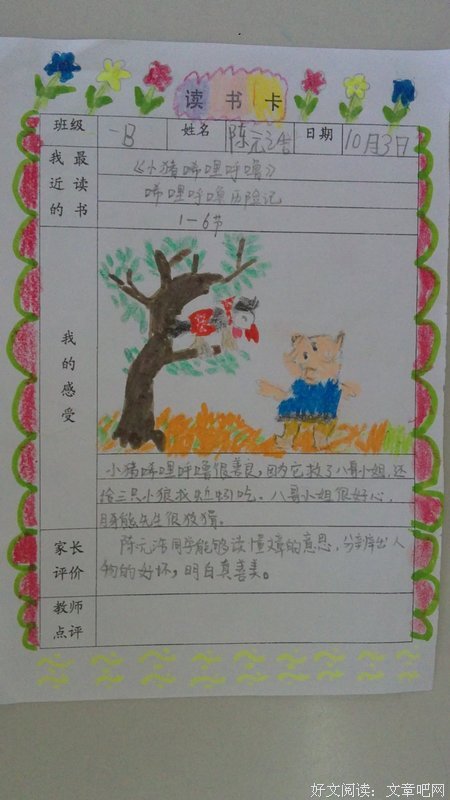 读书卡
班级 一B 姓名 陈元浩 日期 10月3日
我最近读的书
《小猪唏哩呼噜》
唏哩呼噜历险记
1－6节
我的感受
小猪唏哩呼噜很善良，因为它救了八哥小姐，还
给三只小狼找蚯蚓吃。八哥小姐很好心，
能先生很狡猾。
家长评价
陈元浩同学能够读懂文章的意思，分辨出人
物的好坏，明白真善美。
教师点评
好文阅读：文章吧网